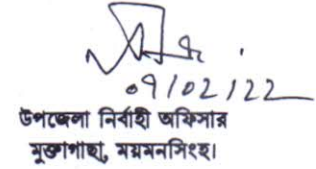 ০৭/০২/২২
উপজেলা নির্বাহী অফিসার
মুক্তাগাছা, ময়মনসিংহ।